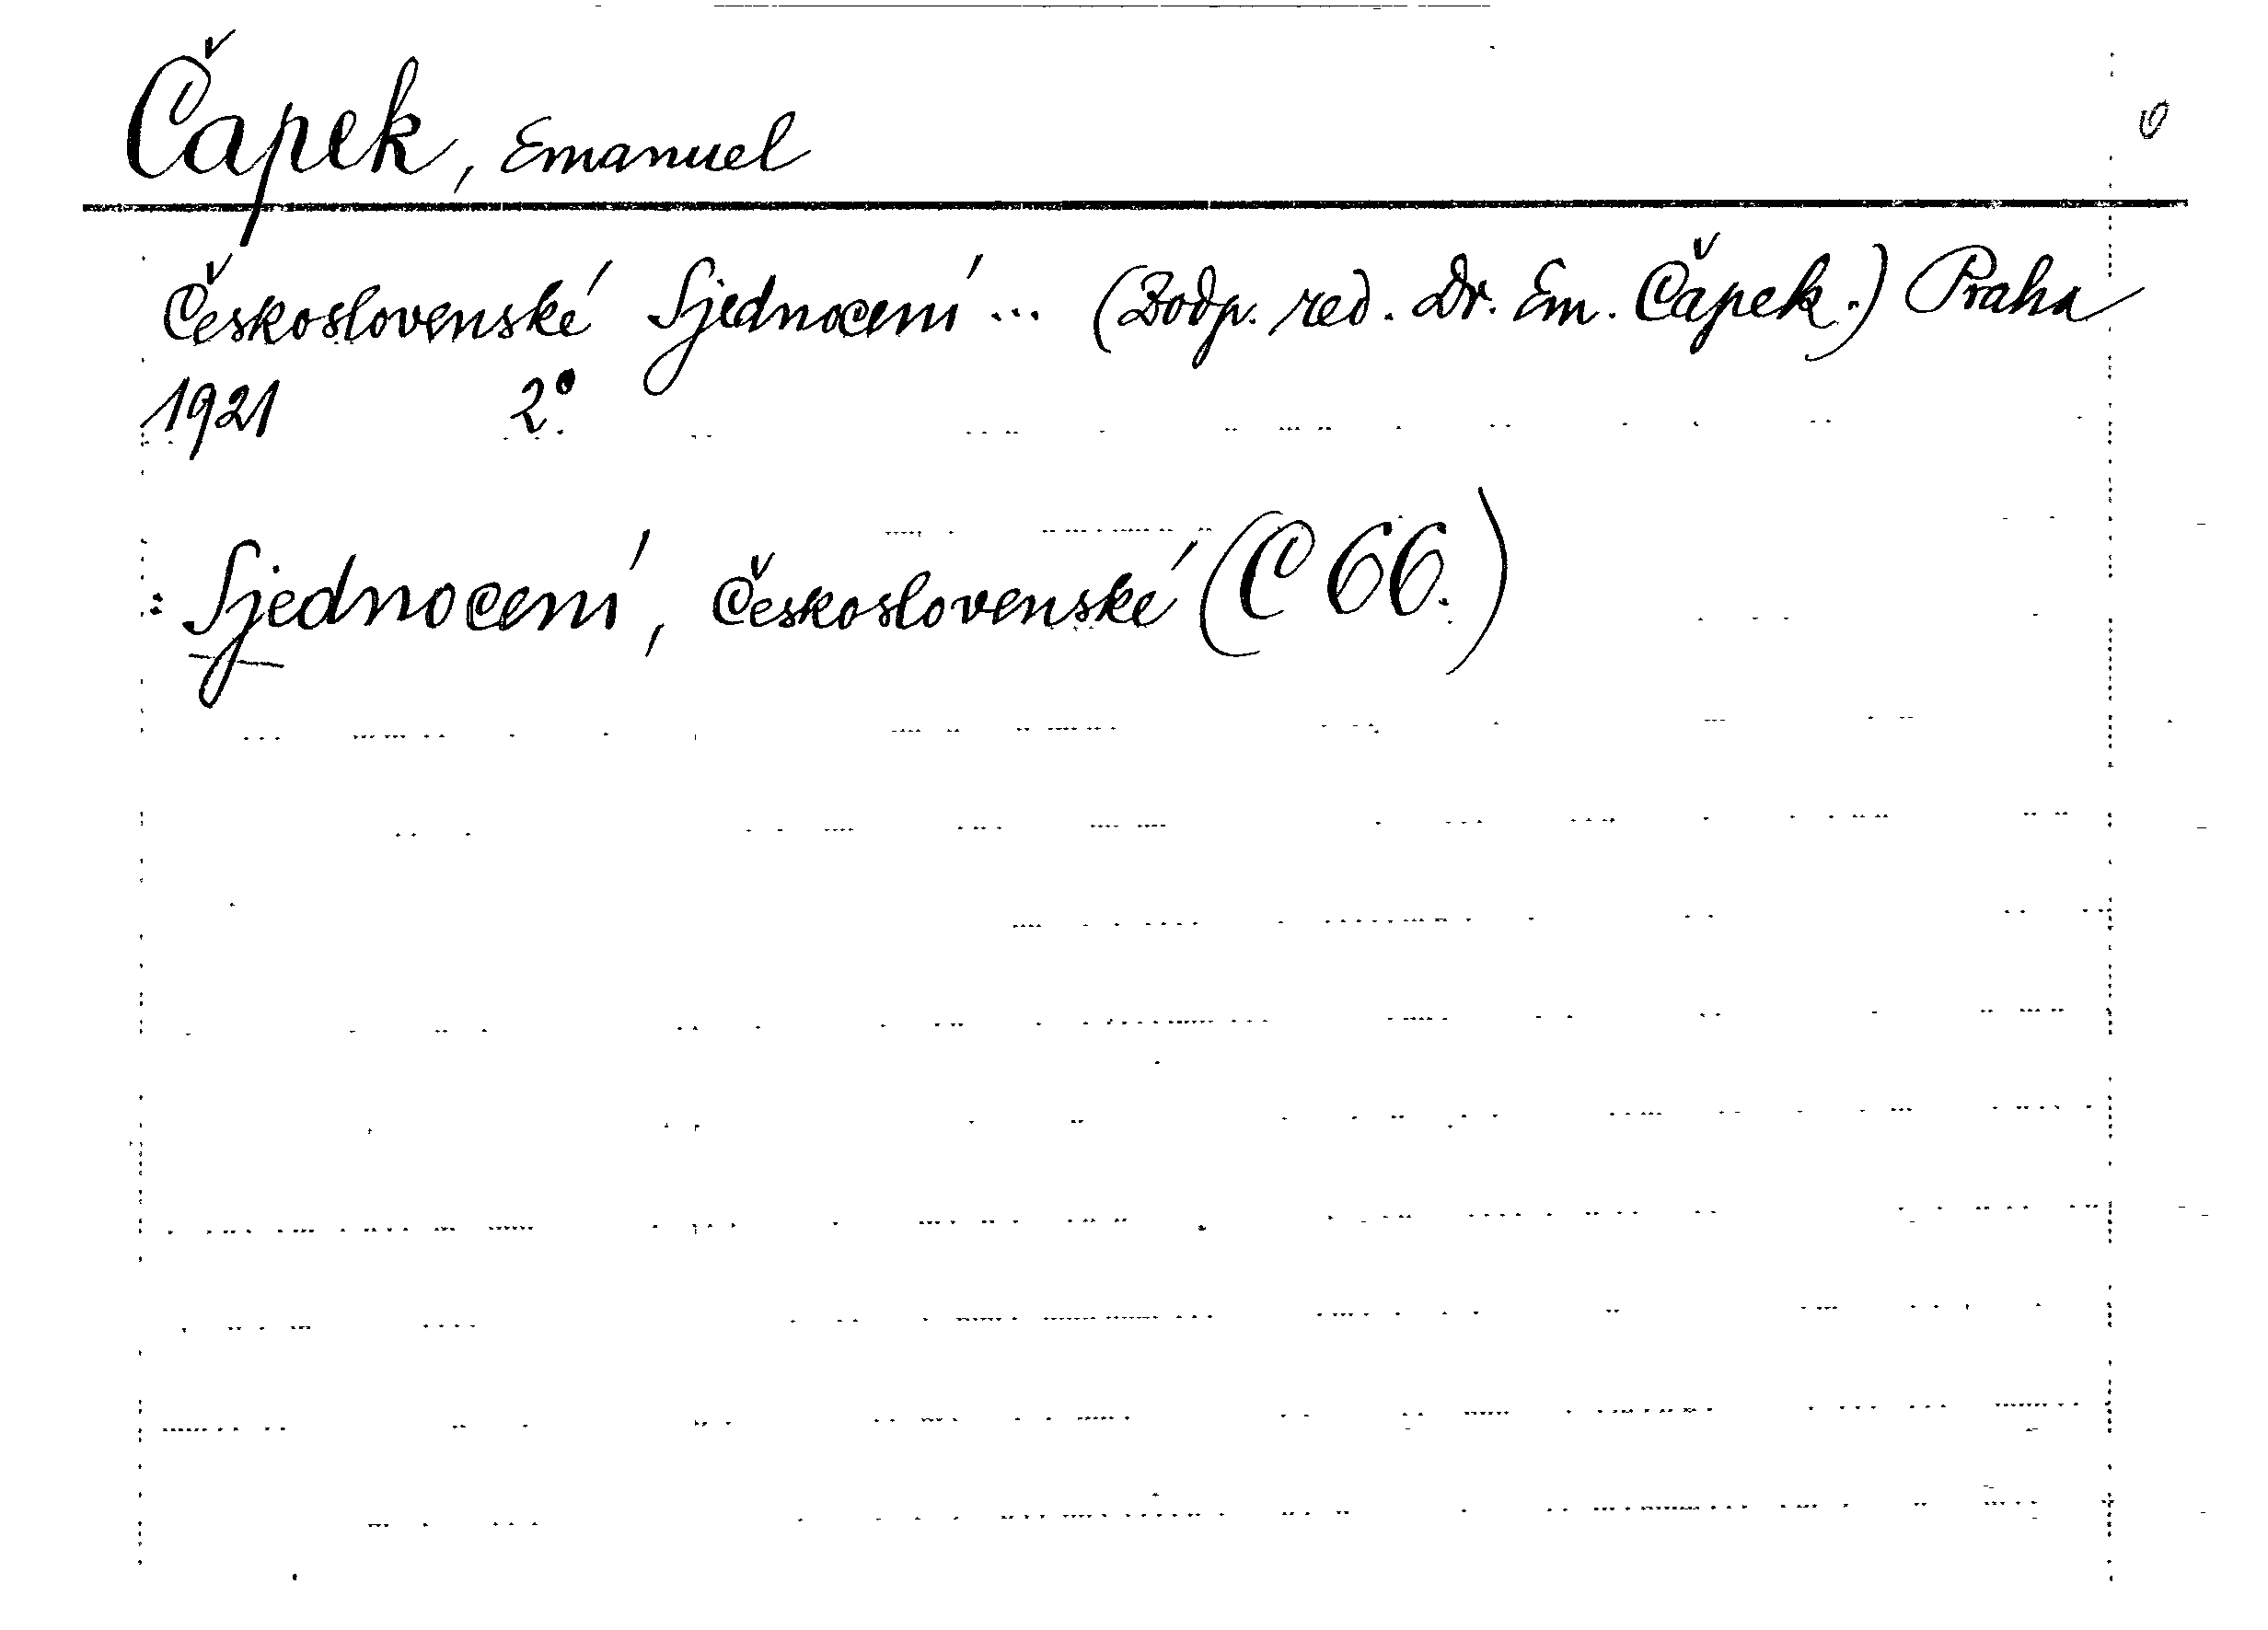 Čapek, Emanuel
Československé Sjednocení ... (Zodp. red. Dr. Em. Čapek.) Praha
1921 2°
: Sjednocení, Československé (C 66.)